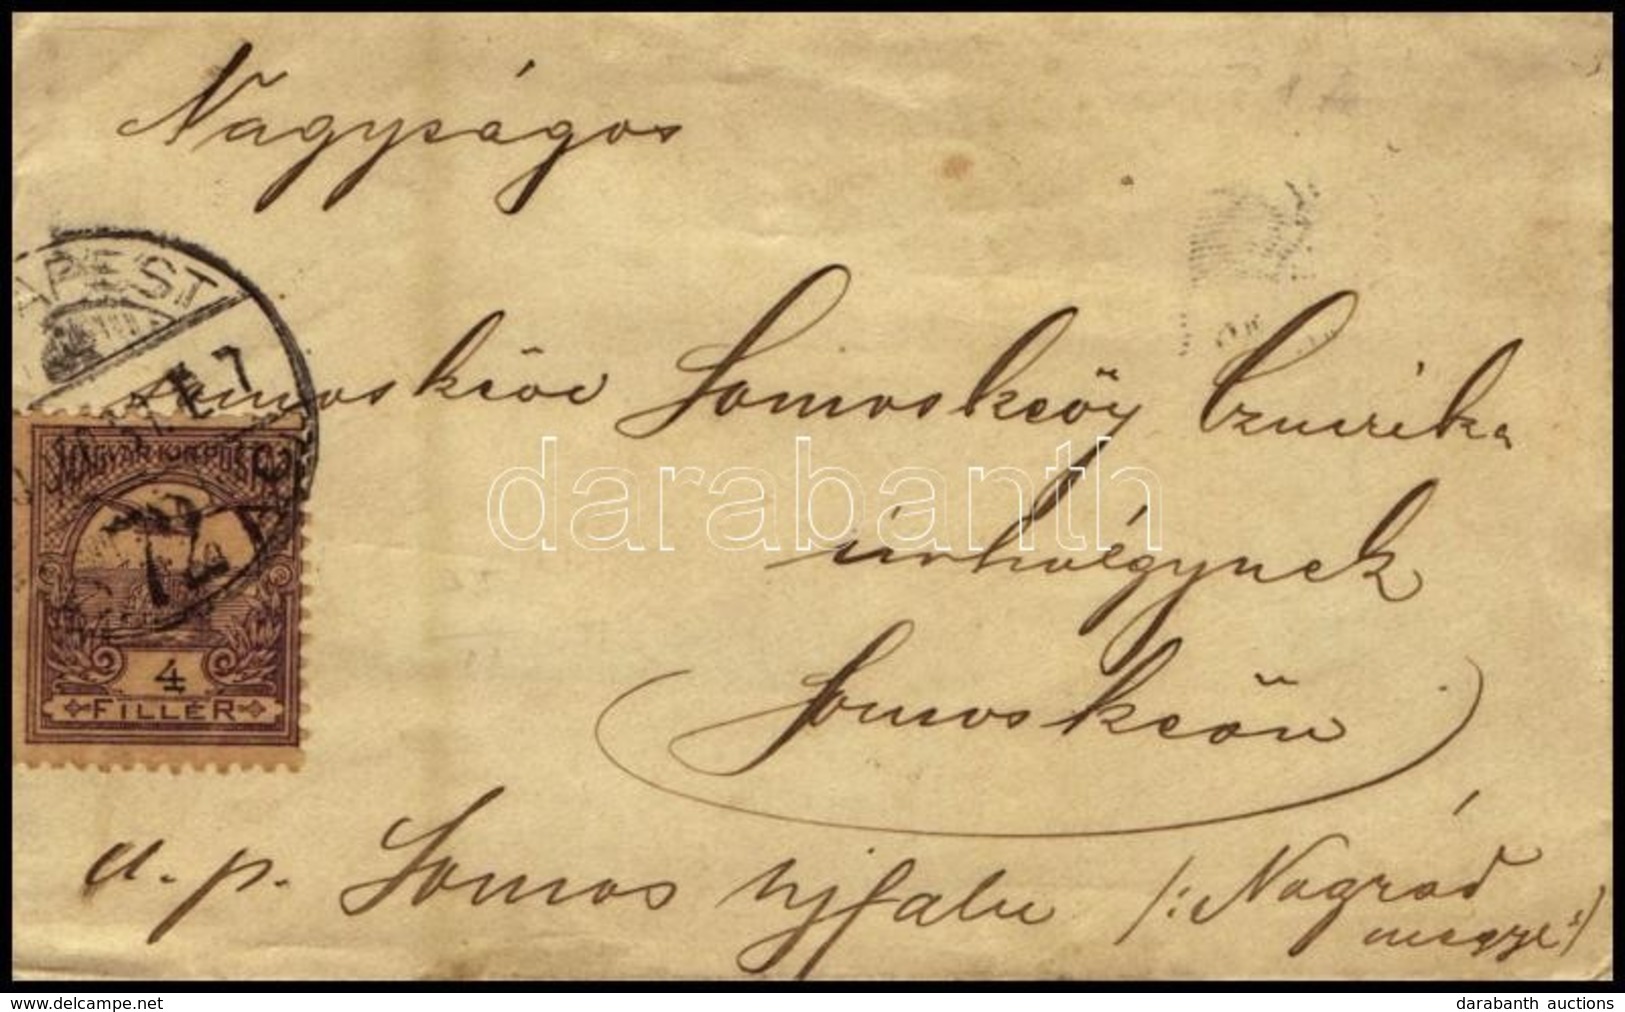 Nagyságos
APEST
Somoskeöi Somoskeöy Czmerika
darabanth
úrhölgynek
Somoskeön
MAGYAR KIR. POSTA
4
FILLÉR
u. p. Somos Ujfalu /: Nógrád
megye :/
www.delcampe.net
darabanth auctions